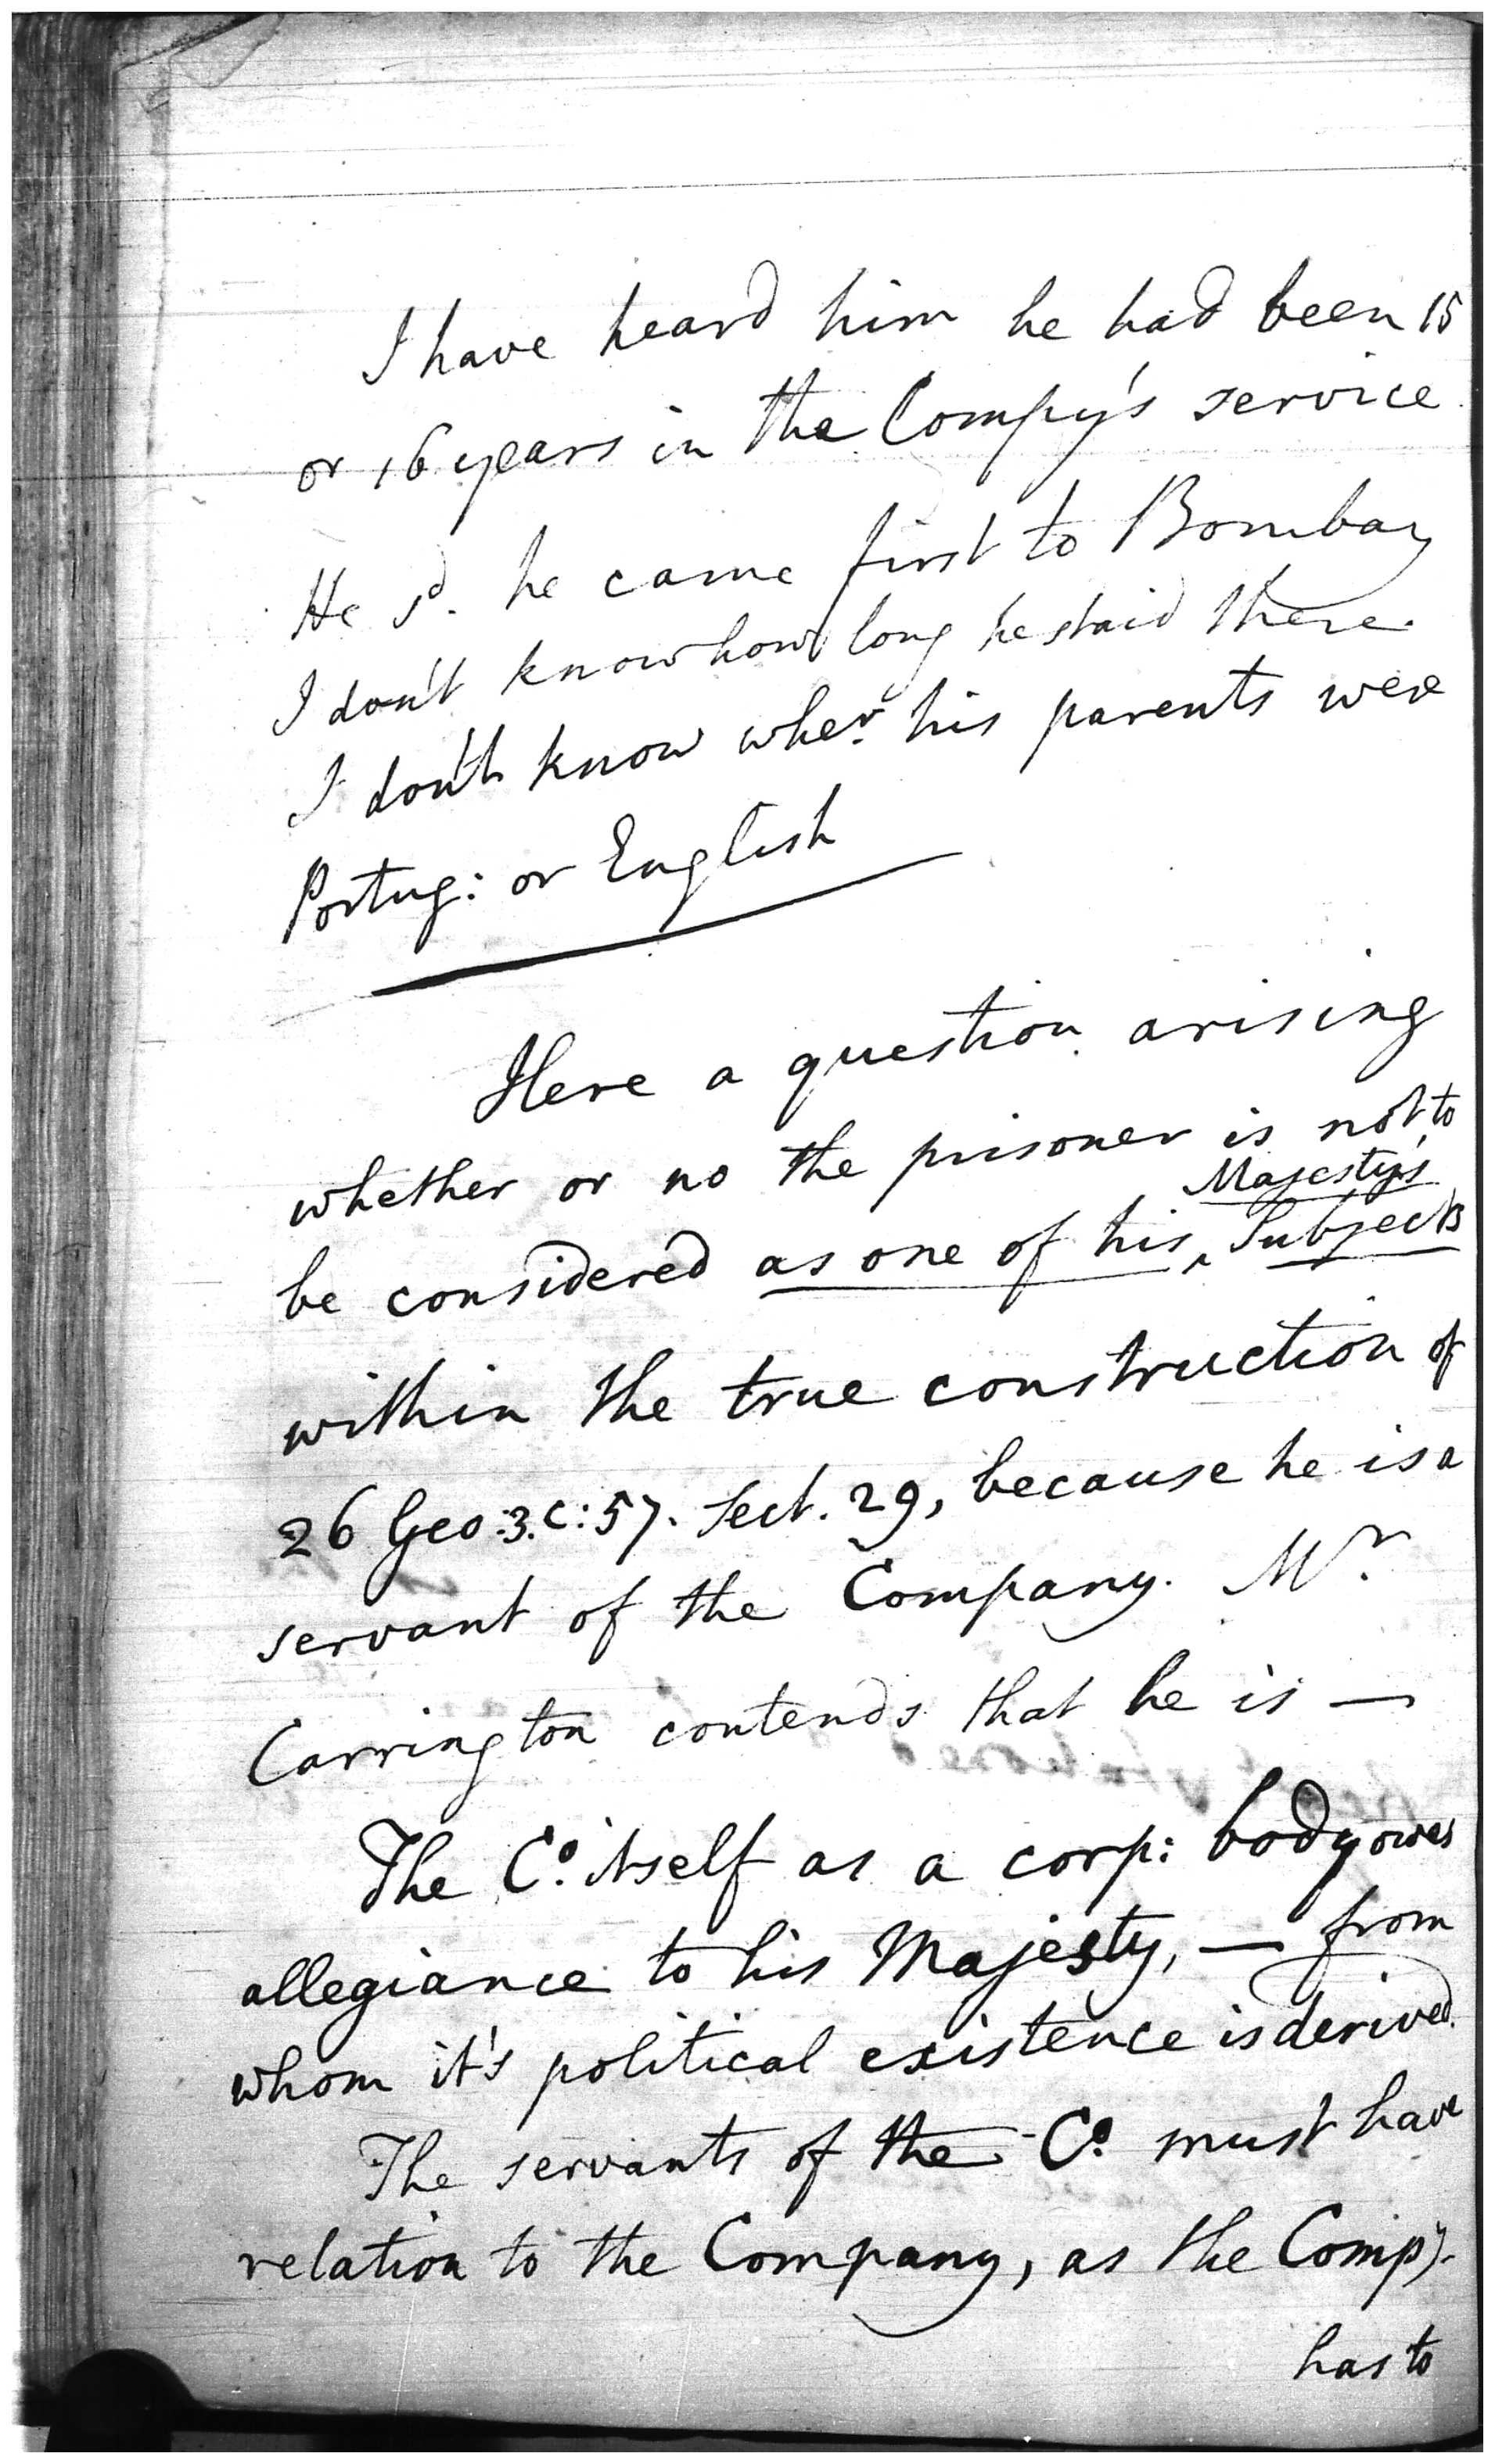 I have heard him he had been 15
or 16 years in the Compy's service
He sd. he came first to Bombay
I don't know how long he staid there.
I don't know wher. his parents were
Portug: or English
Here a question arising
whether or no the prisoner is not to
Majesty's
be considered as one of his ^ Subjects
within the true construction of
26 Geo:3. c:57. Sect. 29, because he is a
servant of the Company. Mr.
Carrington contends that he is —
The Co. itself as a corp: body owes
allegiance to his Majesty, — from
whom it's political existence is derived.
The servants of the Co. must have
relation to the Company, as the Compy.
has to